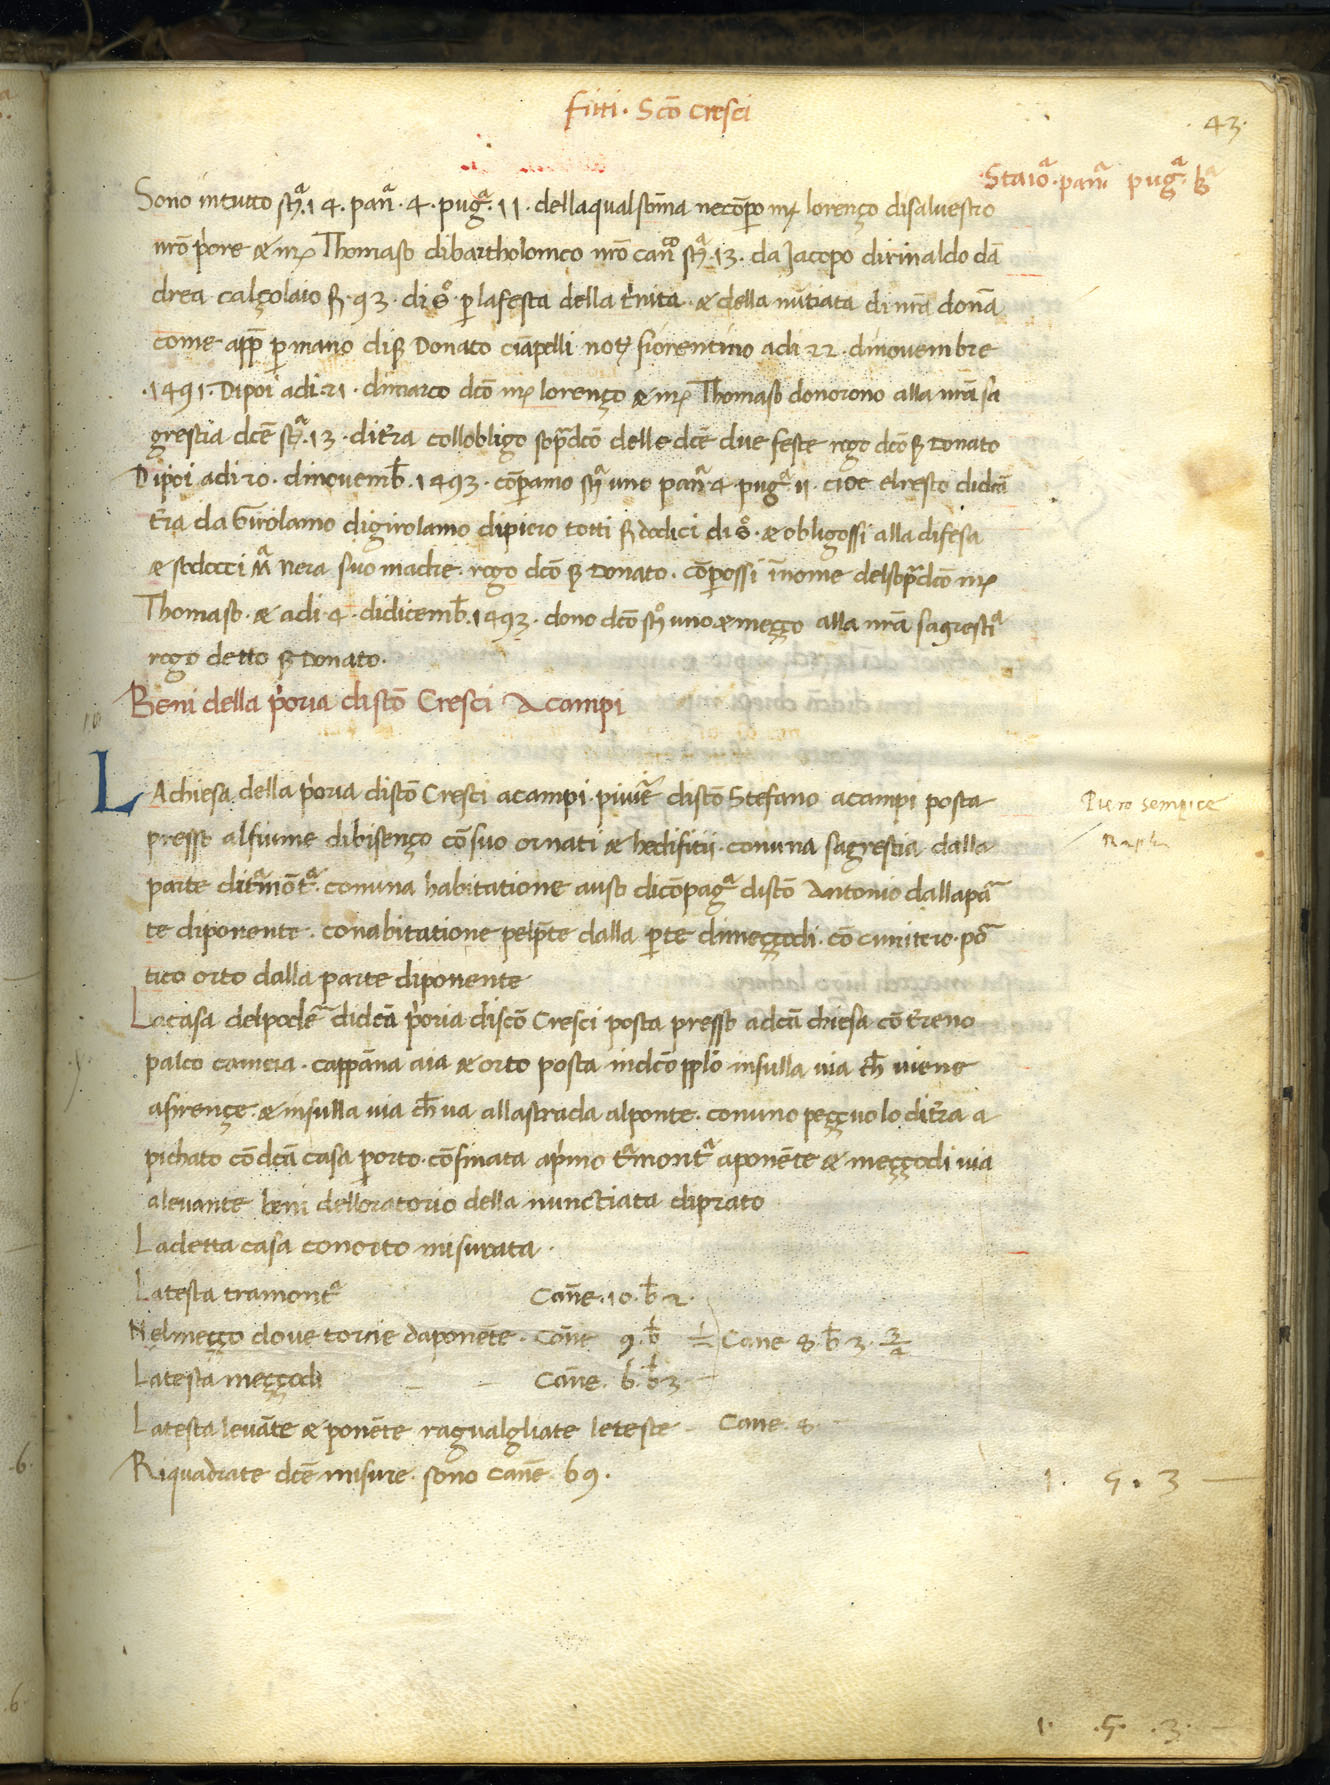 Fitti · Scō Cresci
· 43 ·
Staioᵃ · panᵃ · pugᵃ · bᵃ
Sono intutto stᵃ · 14 · panᵃ · 4 · pugᵃ · 11 · dellaqual sōma necōpo mͬ lorenço disalvestro
nrō pͥore & mͬ Thomaso dibartholomeo nrō canᶜᵒ stᵃ · 13 · da Jacopo dirinaldo dā
drea calçolaio f · 93 · di sº · p̱ lafesta della tͥnita · & della nūtiata di nrā donā
come app̄ p̱ mano diß Donato ciāpelli notͦ fiorentino adi 22 · dinovembre
· 1491 · Dipoi adi · 21 · dimarco dcō mͬ lorenço & mͬ Thomaso donorono alla nrā sa
grestia dcē stᵃ · 13 · ditr̄a collobligo sop̄ᵃdcō delle dcē due feste rogo dcō ß Donato
Dipoi adi 20 · dinovemb̄ · 1493 · cōperamo stᵃ uno panᵃ · 4 · pugᵃ · 11 · cioe elresto didcā
tr̄a da Girolamo digirolamo dipiero totti f dodici di sº · & obligossi alla difesa
& sodocci Mᵃ Nera suo madre · rogo dcō ß Donato · cōperossi īnome delsop̄ᵃdcō mͬ
Thomaso · & adi · 4 · didicemb̄ · 1493 · dono dcō stº uno & meçço alla nrā sagrestiᵃ
rogo detto ß Donato ·
Beni della pͥoria discō Cresci Acampi
LAchiesa della pͥoria discō Cresci acampi · piviēᵉ discō Stefano acampi posta
presso alfiume dibisenço cō suo ornati & hedifitii · conuna sagrestia dalla
parte ditᵃmōtᵃ · conuna habitatione auso dicōpagᵃ discō Antonio dallapā
te diponente · conabitatione pelp̄te dalla p̱te dimeççodi · cō cimitero · pōᵃ
tico orto dalla parte diponente
Lacasa delpodēᵉ didcā pͥoria discō Cresci posta presso adcā chiesa cō tr̄eno
palco camera · cappāna aia & orto posta indcō ppl̄o insulla via ch̄ viene
afirençe & insulla via ch̄ va allastrada alponte · conuno peççuolo ditr̄a a
pichato cō dcā casa p̱ orto · cōfinata apͥmo tᵃmontᵃ aponēte & meççodi via
alevante beni delloratorio della nunctiata diprato
Ladetta casa conorto misurata ·
Latesta tramontᵃ Cañe · 10 · b̄ · 2 ·
Nelmeçço dove torcie daponēte · Cañe 9 · b̄ ½ Cane 8 · b̄ 3 · ¾
Latesta meççodi Cañe · 6 · b̄ 3 ·
Latesta levāte & ponēte ragualgliate leteste Cane · 8 ·
Riquadrate dcē misure · sono Cañe · 69 ·
1 · 5 · 3
Piero sempice
1 · · 5 · · 3 ·